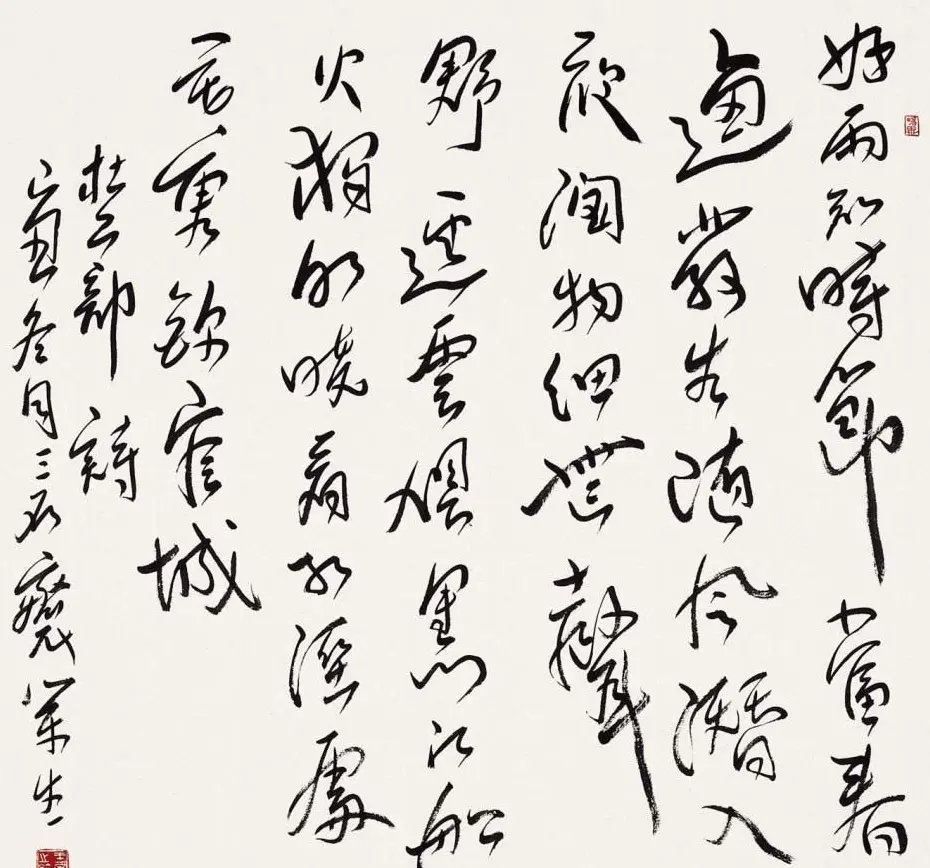 好雨知時節當春
迺發生隨風潛入
夜潤物細無聲
野逕雲俱黑江船
火獨明曉看紅溼處
花重錦官城
杜工部詩
丑冬月三石